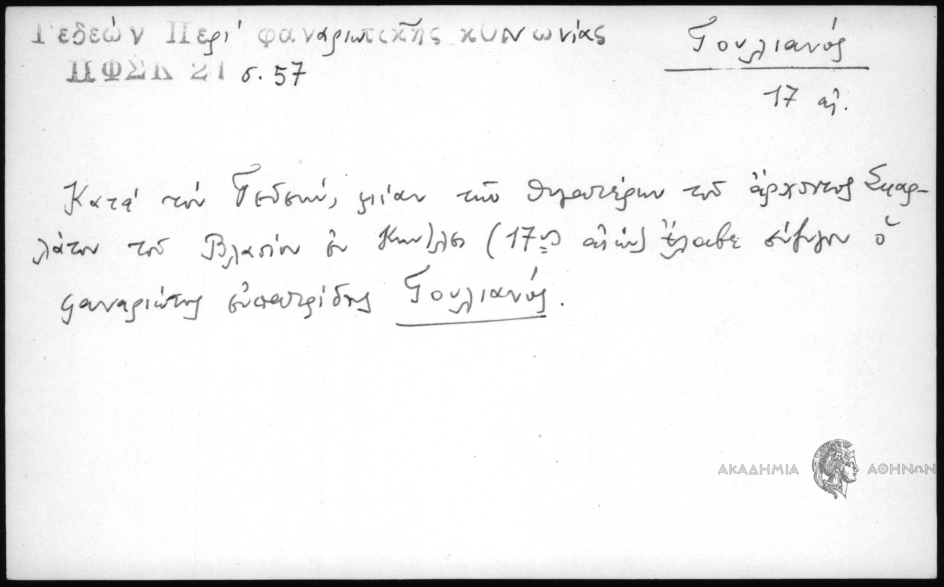 Γεδεών Περί φαναριωτικῆς κοινωνίας
ΠΦΣΚ 21 σ. 57
Γουλιανός
17 αἰ.
Κατά τόν Γεδεών, μίαν τῶν θυγατέρων τοῦ ἄρχοντος Σκαρ-
λάτου τοῦ Βλασίου ἐν Κων/λει (17ος αἰών) ἔλαβε σύζυγον ὁ
φαναριώτης εὐπατρίδης Γουλιανός.
ΑΚΑΔΗΜΙΑ ΑΘΗΝΩΝ